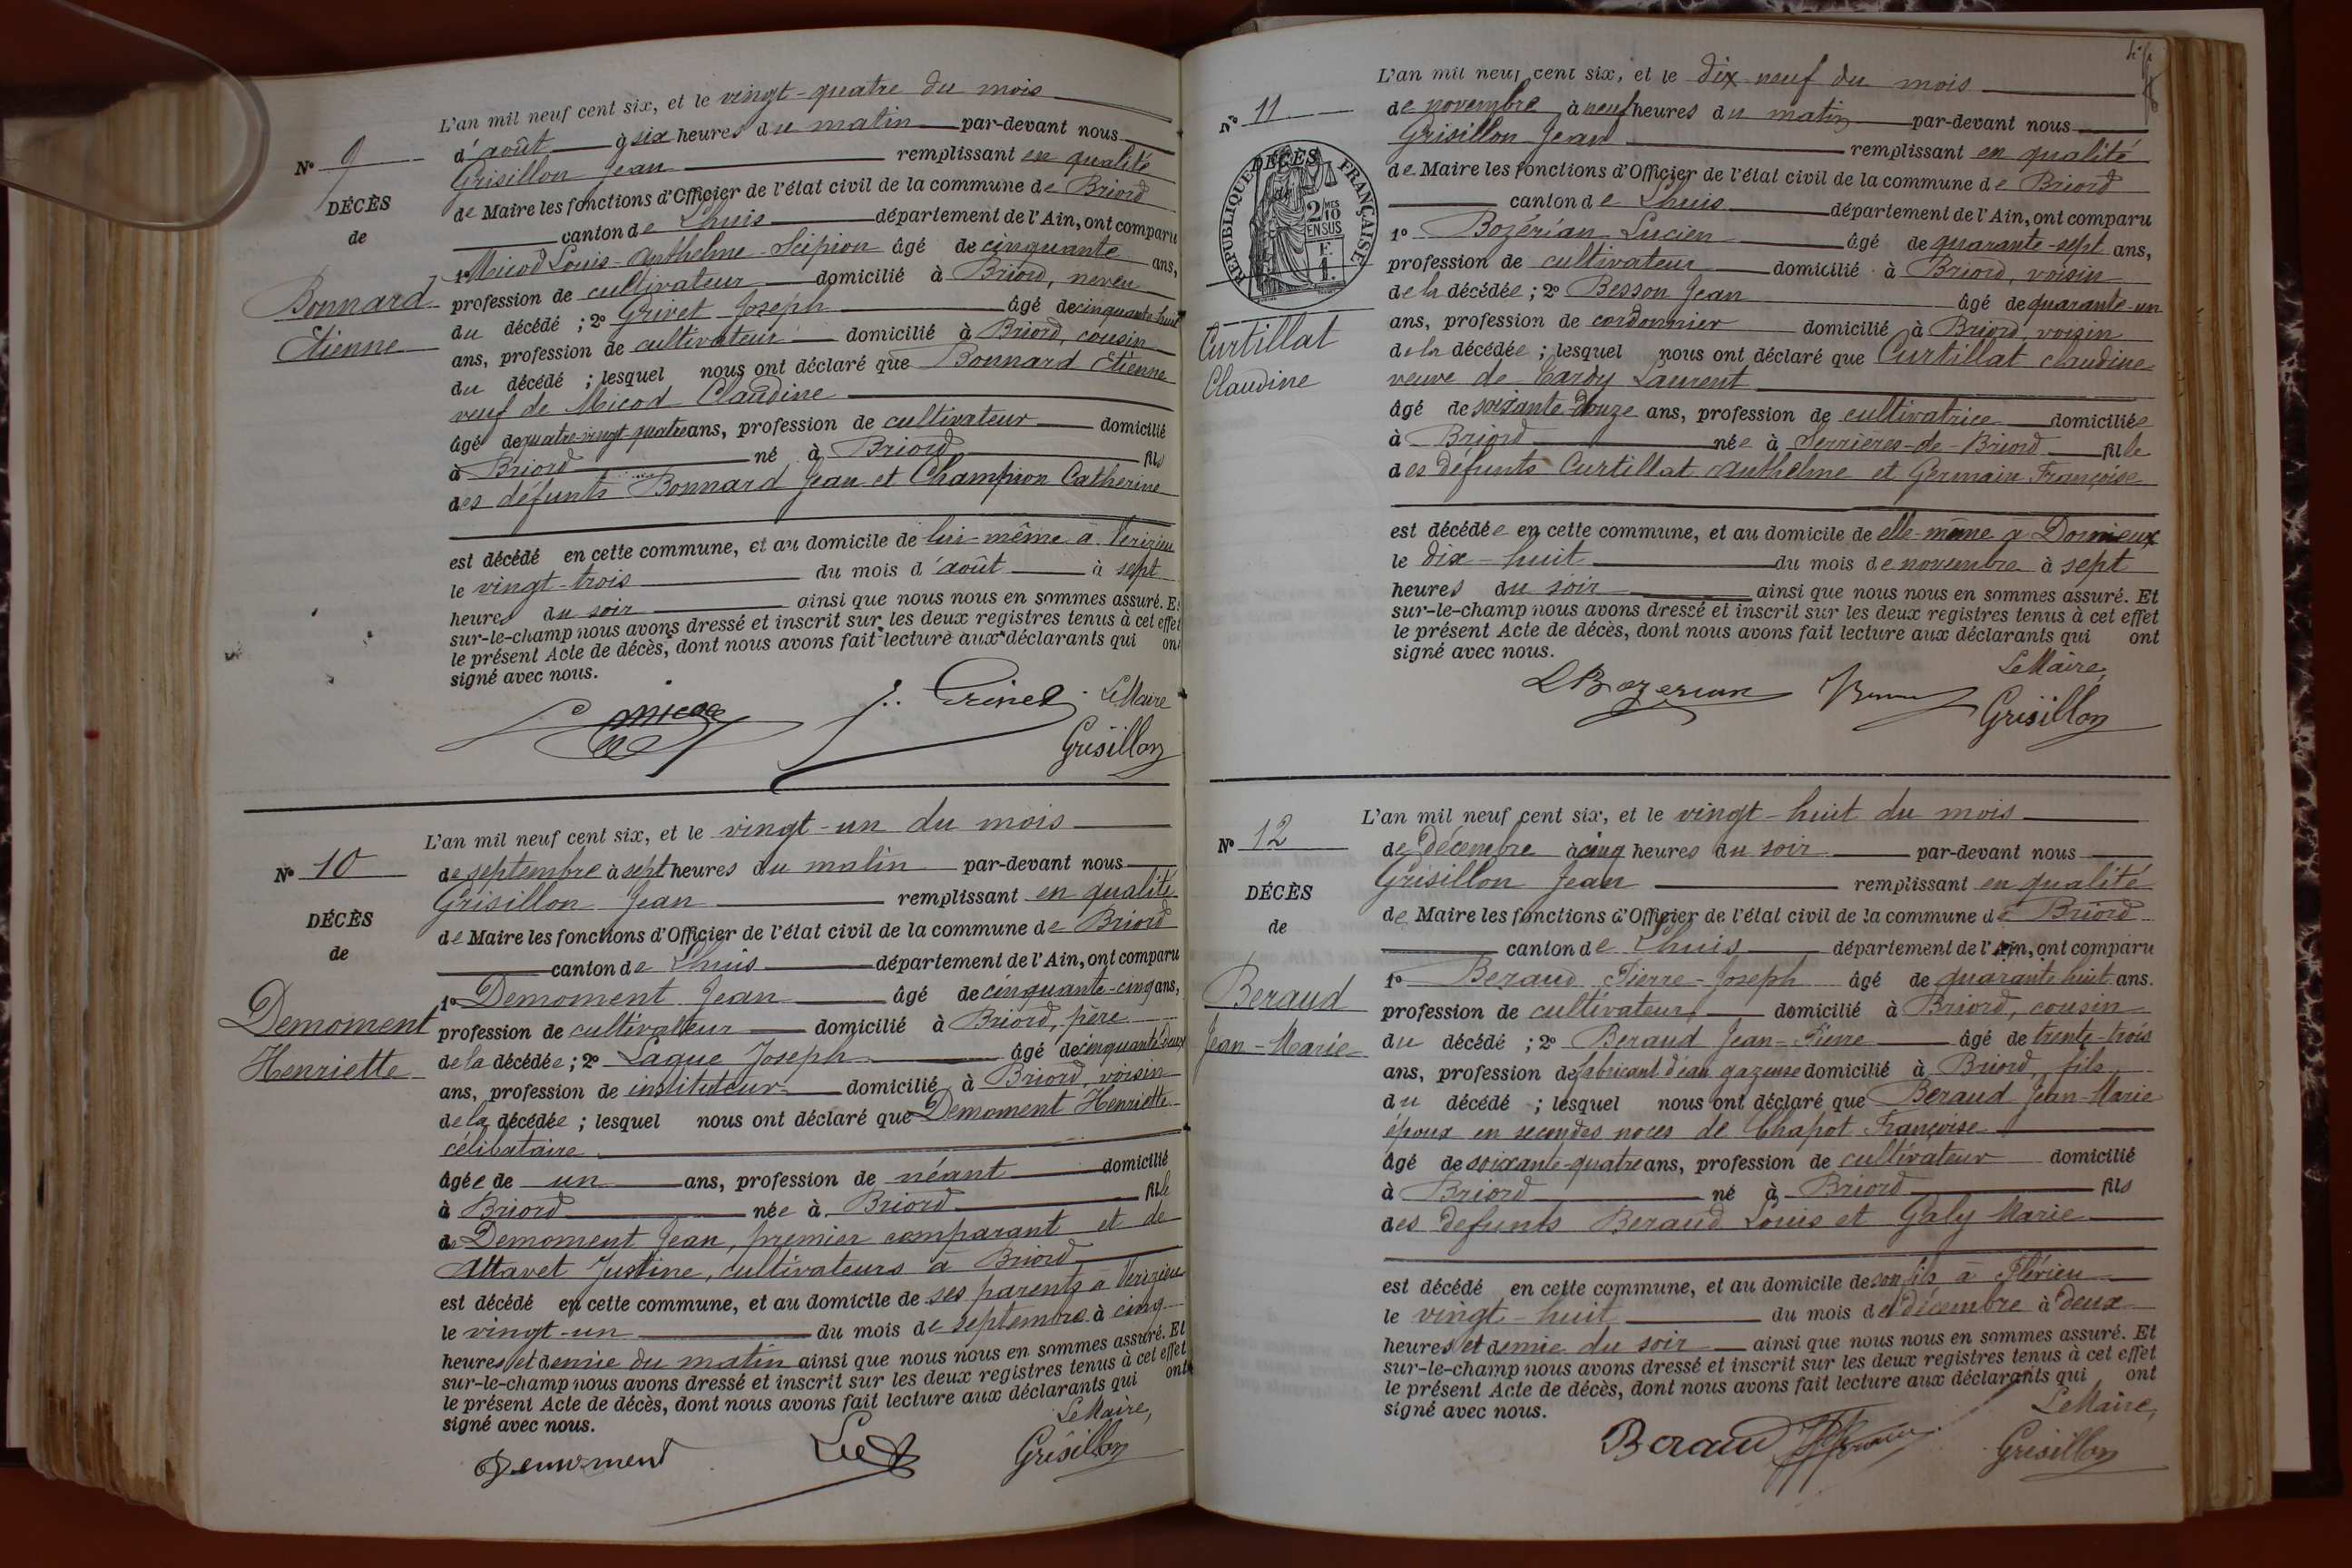 L'an mil neuf cent six, et le vingt-quatre du mois
N° 9
d'août à six heures du matin par-devant nous
Grisillon Jean remplissant en qualité
DÉCÈS
de Maire les fonctions d'Officier de l'état civil de la commune de Briord
de
canton de Lhuis département de l'Ain, ont comparu
1° Micod Louis-Anthelme-Scipion âgé de cinquante ans,
Bonnard
profession de cultivateur domicilié à Briord, neveu
du décédé ; 2° Grivet Joseph âgé de cinquante-huit
Etienne
ans, profession de cultivateur domicilié à Briord, cousin
du décédé ; lesquel nous ont déclaré que Bonnard Etienne
veuf de Micod Claudine
âgé de quatre-vingt-quatre ans, profession de cultivateur domicilié
à Briord né à Briord fils
des défunts Bonnard Jean et Champion Catherine
est décédé en cette commune, et au domicile de lui-même à Verizieu
le vingt-trois du mois d'août à sept
heures du soir ainsi que nous nous en sommes assuré. Et
sur-le-champ nous avons dressé et inscrit sur les deux registres tenus à cet effet
le présent Acte de décès, dont nous avons fait lecture aux déclarants qui ont
signé avec nous.
Micod J. Grivet Le Maire
Grisillon
L'an mil neuf cent six, et le vingt-un du mois
N° 10
de septembre à sept heures du matin par-devant nous
Grisillon Jean remplissant en qualité
DÉCÈS
de Maire les fonctions d'Officier de l'état civil de la commune de Briord
de
canton de Lhuis département de l'Ain, ont comparu
1° Demoment Jean âgé de cinquante-cinq ans,
Demoment
profession de cultivateur domicilié à Briord, père
de la décédée ; 2° Laque Joseph âgé de cinquante-deux
Henriette
ans, profession de instituteur domicilié à Briord, voisin
de la décédée ; lesquel nous ont déclaré que Demoment Henriette
célibataire
âgée de un ans, profession de néant domicilié
à Briord née à Briord fille
de Demoment Jean, premier comparant et de
Attavet Justine, cultivateurs à Briord
est décédé en cette commune, et au domicile de ses parents à Verizieu
le vingt-un du mois de septembre à cinq
heures et demie du matin ainsi que nous nous en sommes assuré. Et
sur-le-champ nous avons dressé et inscrit sur les deux registres tenus à cet effet
le présent Acte de décès, dont nous avons fait lecture aux déclarants qui ont
signé avec nous.
Le Maire,
Demoment Grisillon
L'an mil neuf cent six, et le dix-neuf du mois
N° 11
de novembre à neuf heures du matin par-devant nous
Grisillon Jean remplissant en qualité
DÉCÈS
RÉPUBLIQUE FRANÇAISE
2 MES 10 EN SUS
F. 1.
de Maire les fonctions d'Officier de l'état civil de la commune de Briord
canton de Lhuis département de l'Ain, ont comparu
1° Bozérian Lucien âgé de quarante-sept ans,
profession de cultivateur domicilié à Briord, voisin
de la décédée ; 2° Besson Jean âgé de quarante-un
Curtillat
ans, profession de cordonnier domicilié à Briord, voisin
de la décédée ; lesquel nous ont déclaré que Curtillat Claudine
Claudine
veuve de Cardy Laurent
âgé de soixante-douze ans, profession de cultivatrice domiciliée
à Briord née à Serrières-de-Briord fille
des défunts Curtillat Anthelme et Germain Françoise
est décédée en cette commune, et au domicile de elle-même à Dornieux
le dix-huit du mois de novembre à sept
heures du soir ainsi que nous nous en sommes assuré. Et
sur-le-champ nous avons dressé et inscrit sur les deux registres tenus à cet effet
le présent Acte de décès, dont nous avons fait lecture aux déclarants qui ont
signé avec nous.
Le Maire,
L Bozerian Grisillon
L'an mil neuf cent six, et le vingt-huit du mois
N° 12
de décembre à cinq heures du soir par-devant nous
Grisillon Jean remplissant en qualité
DÉCÈS
de Maire les fonctions d'Officier de l'état civil de la commune de Briord
de
canton de Lhuis département de l'Ain, ont comparu
1° Beraud Pierre-Joseph âgé de quarante-huit ans.
Beraud
profession de cultivateur domicilié à Briord, cousin
du décédé ; 2° Beraud Jean-Pierre âgé de trente-trois
Jean-Marie
ans, profession de fabricant d'eau gazeuse domicilié à Briord, fils
du décédé ; lesquel nous ont déclaré que Beraud Jean-Marie
époux en secondes noces de Chapot Françoise
âgé de soixante-quatre ans, profession de cultivateur domicilié
à Briord né à Briord fils
des défunts Beraud Louis et Galy Marie
est décédé en cette commune, et au domicile de son fils à Flérieu
le vingt-huit du mois de décembre à deux
heures et demie du soir ainsi que nous nous en sommes assuré. Et
sur-le-champ nous avons dressé et inscrit sur les deux registres tenus à cet effet
le présent Acte de décès, dont nous avons fait lecture aux déclarants qui ont
signé avec nous.
Le Maire,
Beraud Grisillon